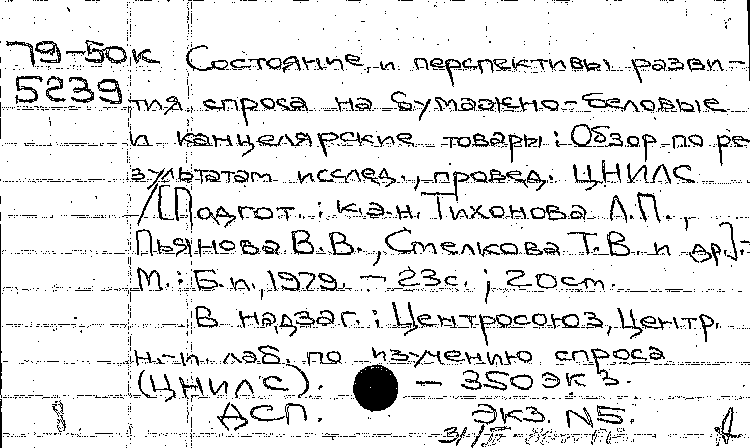 79-50к Состояние и перспективы разви-
5239 тия спроса на бумажно-беловые
и канцелярские товары: Обзор по ре
зультатам исслед., провед. ЦНИЛС
/[Подгот.: к.э.н. Тихонова Л.П.,
Пьянова В.В., Стелкова Т.В. и др.].-
М.: Б.и., 1979. - 23с.; 20см.
В надзаг.: Центросоюз, Центр.
н.-и. лаб. по изучению спроса
(ЦНИЛС). - 350 экз.
ДСП. Экз. N5.